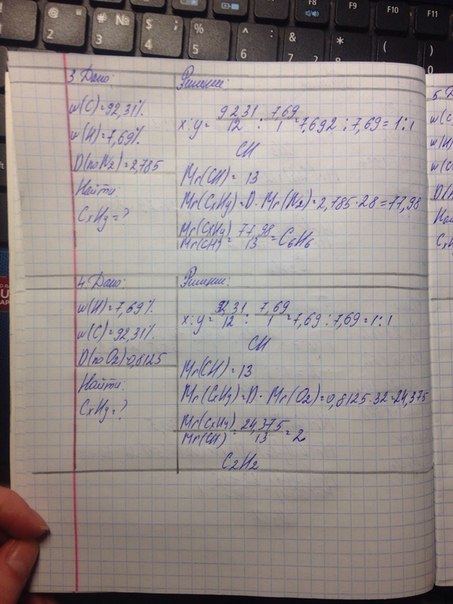 3. Дано:
w(C)=92,31%
w(H)=7,69%
D(по N2)=2,785
Найти
CxHy=?
Решение:
x:y= 92,31/12 : 7,69/1 =7,692:7,69=1:1
CH
Mr(CH)=13
Mr(CxHy)=D·Mr(N2)=2,785·28=77,98
Mr(CxHy)/Mr(CH) = 77,98/13 = C6H6
4. Дано:
w(H)=7,69%
w(C)=92,31%
D(по O2)=0,8125
Найти:
CxHy=?
Решение:
x:y= 92,31/12 : 7,69/1 =7,69:7,69=1:1
CH
Mr(CH)=13
Mr(CxHy)=D·Mr(O2)=0,8125·32=24,375
Mr(CxHy)/Mr(CH) = 24,375/13 =2
C2H2
5. D
w(C
w(H
D(n
Най
CxH
F8
F9
F10
F11